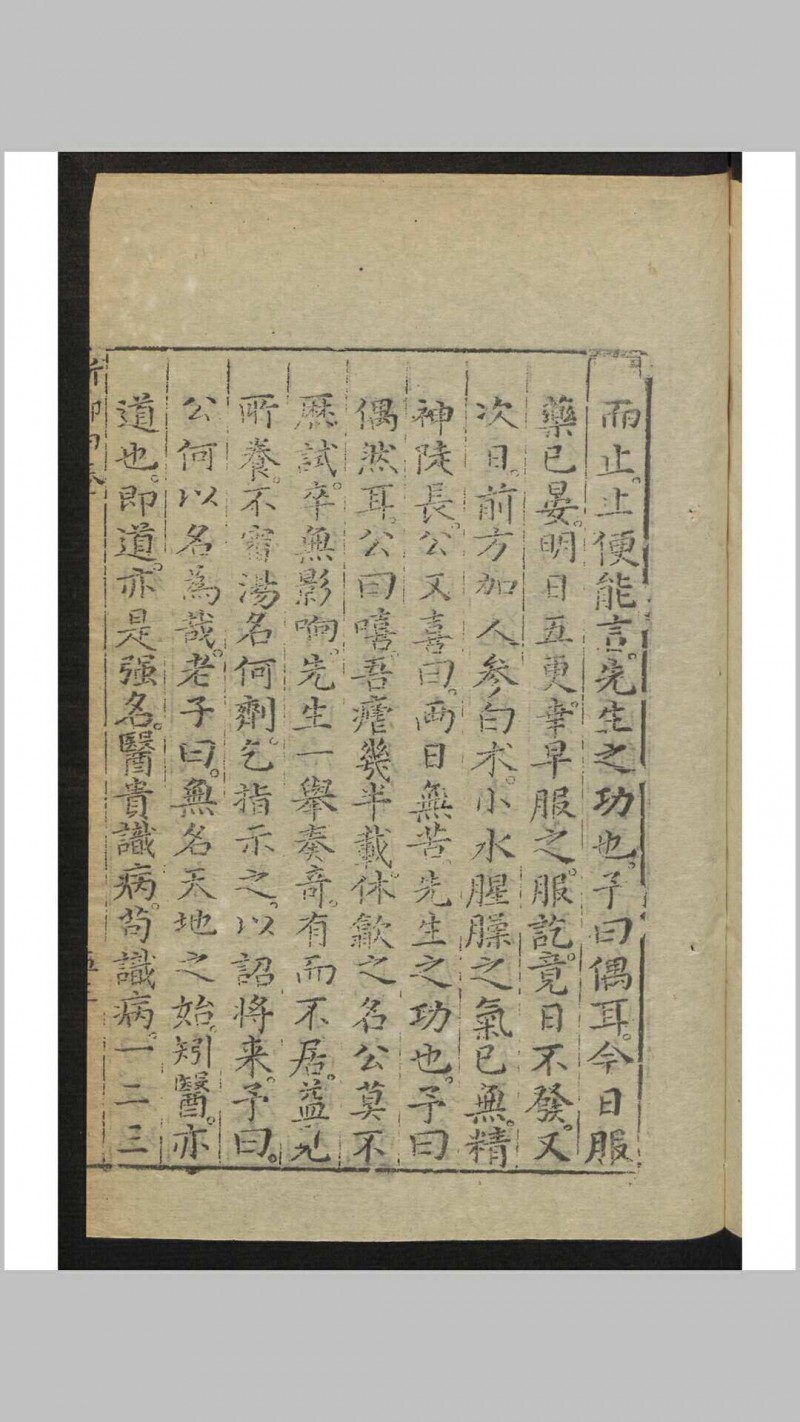 而止。止便能言。先生之功也。予曰偶耳。今日服
藥已晏。明日五更。幸早服之。服訖。竟日不發。又
次日。前方加人参白术。小水腥臊之氣已無。精
神陡長。公又喜曰。两日無苦。先生之功也。予曰
偶然耳。公曰嘻。吾瘧幾半載。休歙之名公莫不
歷試。卒無影响。先生一舉奏奇。有而不居。益見
所養。不審湯名何劑。乞指示之。以詔将来。予曰。
公何以名為哉。老子曰。無名天地之始。矧醫。亦
道也。即道。亦是强名。醫貴識病。苟識病。一二三